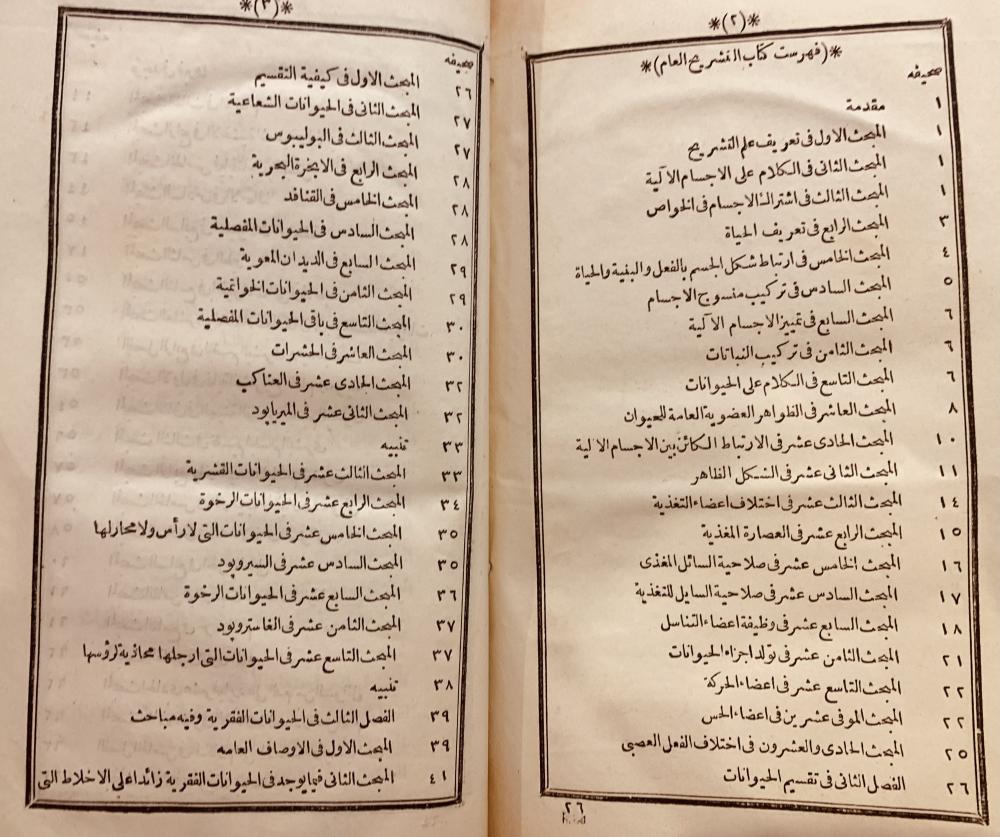 *(٢)*
*(فهرست كتاب التشريح العام)*
صحيفه
١ مقدمة
١ المبحث الاول فى تعريف علم التشريح
١ المبحث الثانى فى الكلام على الاجسام الآلية
١ المبحث الثالث فى اشتراك الاجسام فى الخواص
٣ المبحث الرابع فى تعريف الحياة
٤ المبحث الخامس فى ارتباط شكل الجسم بالفعل والبنية والحياة
٥ المبحث السادس فى تركيب منسوج الاجسام
٦ المبحث السابع فى تمييز الاجسام الآلية
٦ المبحث الثامن فى تركيب النباتات
٦ المبحث التاسع فى الكلام على الحيوانات
٨ المبحث العاشر فى الظواهر العضوية العامة للحيوان
١٠ المبحث الحادى عشر فى الارتباط الكائن بين الاجسام الآلية
١١ المبحث الثانى عشر فى الشكل الظاهر
١٤ المبحث الثالث عشر فى اختلاف اعضاء التغذية
١٥ المبحث الرابع عشر فى العصارة المغذية
١٦ المبحث الخامس عشر فى صلاحية السائل المغذى
١٧ المبحث السادس عشر فى صلاحية السايل للتغذية
١٨ المبحث السابع عشر فى وظيفة اعضاء التناسل
٢١ المبحث الثامن عشر فى تولد اجزاء الحيوانات
٢٢ المبحث التاسع عشر فى اعضاء الحركة
٢٢ المبحث الموفى عشرين فى اعضاء الحس
٢٥ المبحث الحادى والعشرون فى اختلاف الفعل العصبى
٢٦ الفصل الثانى فى تقسيم الحيوانات
٢٦
*(٣)*
صحيفه
٢٦ المبحث الاول فى كيفية التقسيم
٢٧ المبحث الثانى فى الحيوانات الشعاعية
٢٧ المبحث الثالث فى البوليبوس
٢٨ المبحث الرابع فى الابخرة البحرية
٢٨ المبحث الخامس فى القنافد
٢٨ المبحث السادس فى الحيوانات المفصلية
٢٩ المبحث السابع فى الديدان المعوية
٢٩ المبحث الثامن فى الحيوانات الخواتمية
٣٠ المبحث التاسع فى باقى الحيوانات المفصلية
٣٠ المبحث العاشر فى الحشرات
٣٢ المبحث الحادى عشر فى العناكب
٣٢ المبحث الثانى عشر فى الميريابود
٣٣ تنبيه
٣٣ المبحث الثالث عشر فى الحيوانات القشرية
٣٤ المبحث الرابع عشر فى الحيوانات الرخوة
٣٥ المبحث الخامس عشر فى الحيوانات التى لا رأس ولا محار لها
٣٥ المبحث السادس عشر فى السيروپود
٣٦ المبحث السابع عشر فى الحيوانات الرخوة
٣٧ المبحث الثامن عشر فى الغاستروپود
٣٧ المبحث التاسع عشر فى الحيوانات التى ارجلها محاذية لرؤسها
٣٨ تنبيه
٣٩ الفصل الثالث فى الحيوانات الفقرية وفيه مباحث
٣٩ المبحث الاول فى الاوصاف العامه
٤١ المبحث الثانى فيما يوجد فى الحيوانات الفقرية زائدا على الاخلاط التى